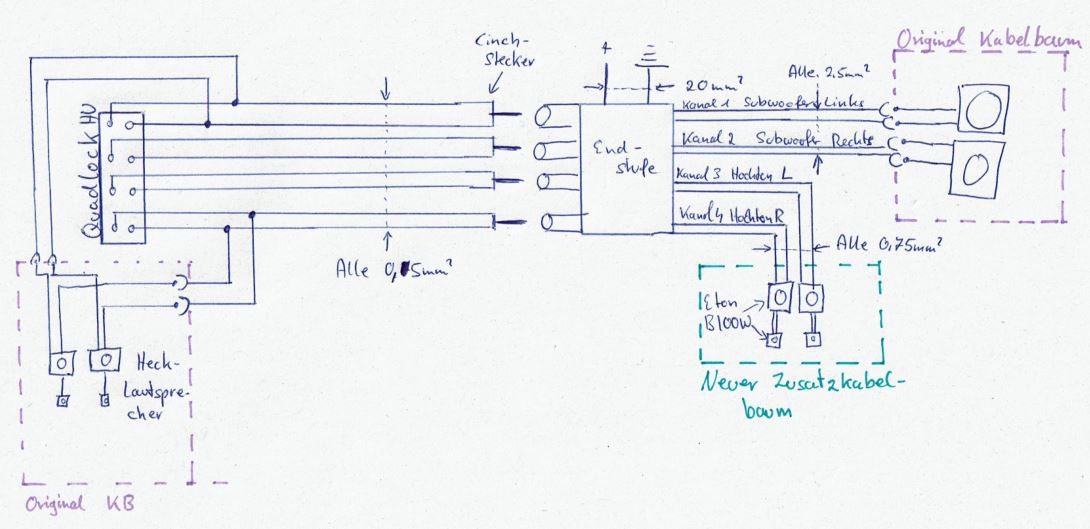 Original Kabelbaum
Cinch-
Stecker
+
20mm²
Alle 2.5mm²
Kanal 1 Subwoofer Links
Kanal 2 Subwoofer Rechts
Kanal 3 Hochton L
Kanal 4 Hochton R
End-
stufe
Quadlock HU
Alle 0,75mm²
Alle 0,75mm²
Eton
B100W
Neuer Zusatzkabel-
baum
Heck-
Lautspre-
cher
Original KB